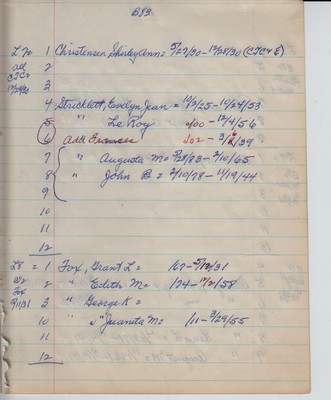 B83
L 70 1 Christensen Shirley Ann = 5/27/30 - 12/28/30 (CTC & E)
all 2
CTC2 3
12/29/30
4 Stricklett, Evelyn Jean = 10/3/25 - 10/24/53
5 " Le Roy 1/00 - 12/4/56
6 Add Frances 1/02 - 3/ /39
7 " Augusta M = 5/28/83 - 2/10/65
8 " John B = 2/10/78 - 11/19/44
9
10
11
12
L8 = 1 Fox, Grant L = 1/67 - 5/ /31
W2 2 " Edith M = 1/74 - 11/2/58
Fox 3 " George K =
9/11/31
10 " Juanita M = 1/11 - 3/29/55
11
12